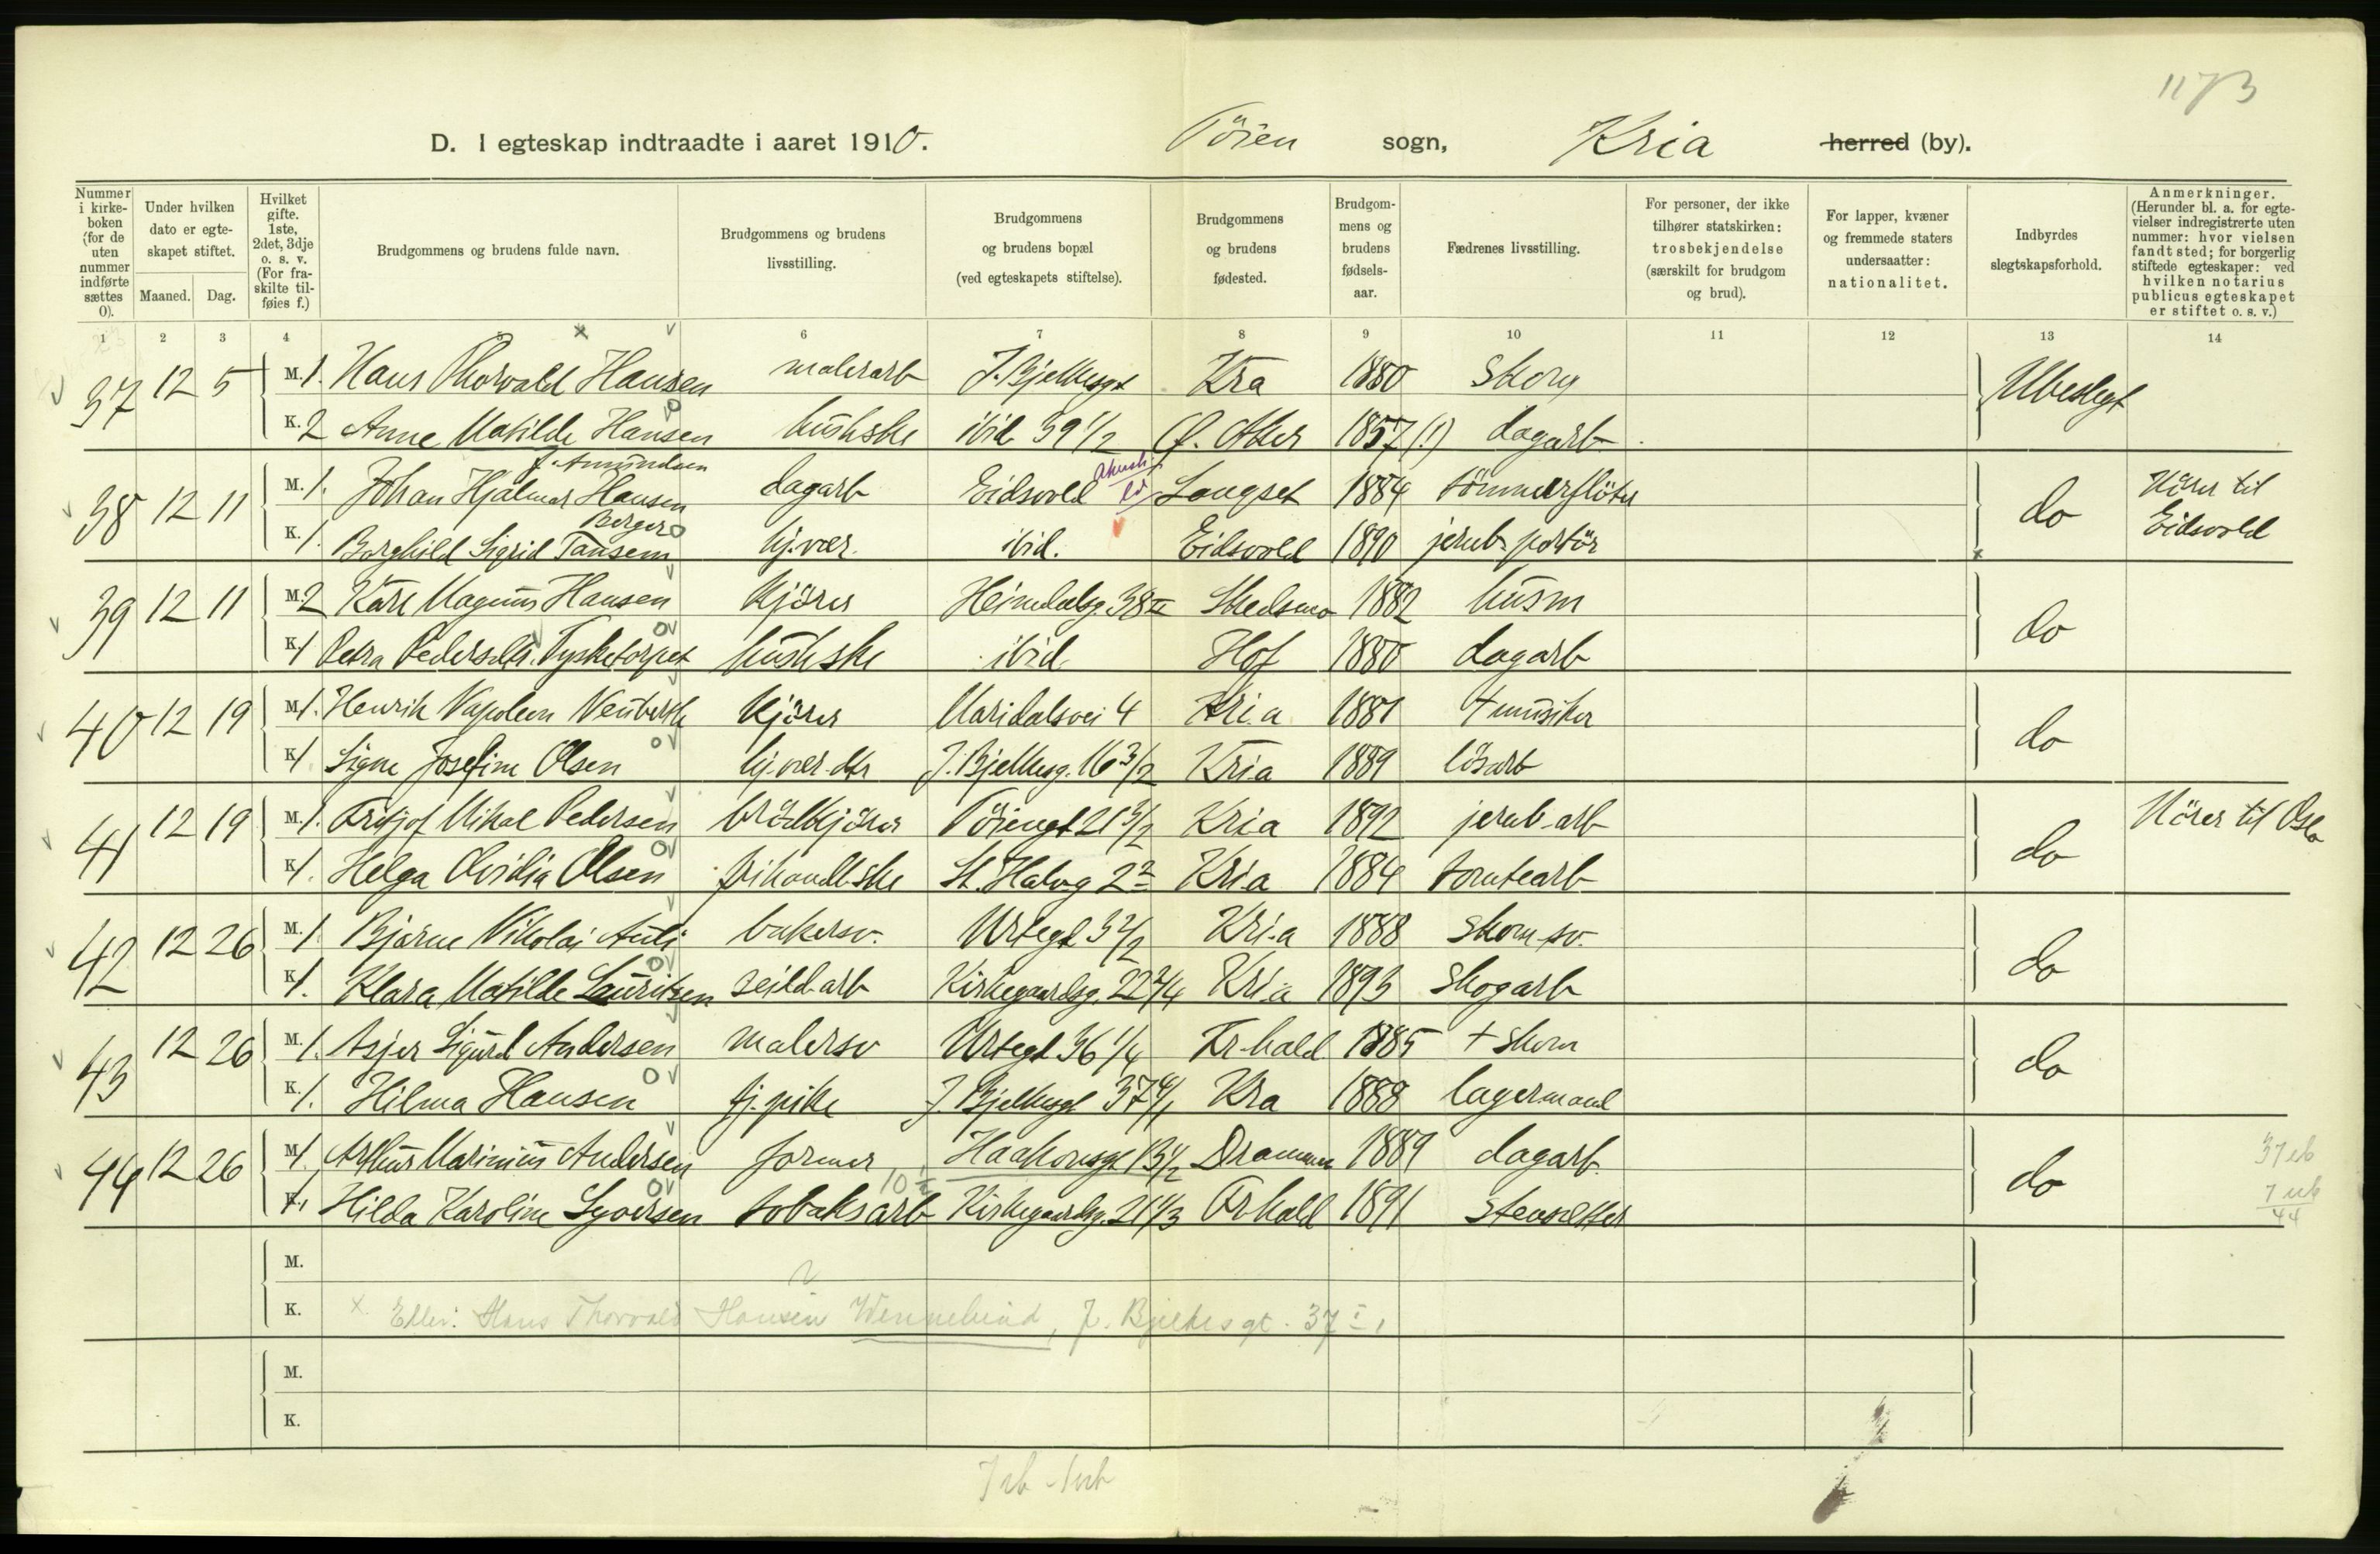 1173
D. I egteskap indtraadte i aaret 1910. Töien sogn, Kria herred (by).
Nummer i kirkeboken (for de uten nummer indførte sættes 0).
Under hvilken dato er egteskapet stiftet.
Maaned. Dag.
Hvilket gifte. 1ste, 2det, 3dje o. s. v. (For fraskilte tilføies f.)
Brudgommens og brudens fulde navn.
Brudgommens og brudens livsstilling.
Brudgommens og brudens bopæl (ved egteskapets stiftelse).
Brudgommens og brudens fødested.
Brudgommens og brudens fødselsaar.
Fædrenes livsstilling.
For personer, der ikke tilhører statskirken: trosbekjendelse (særskilt for brudgom og brud).
For lapper, kvæner og fremmede staters undersaatter: nationalitet.
Indbyrdes slegtskapsforhold.
Anmerkninger. (Herunder bl. a. for egtevielser indregistrerte uten nummer: hvor vielsen fandt sted; for borgerlig stiftede egteskaper: ved hvilken notarius publicus egteskapet er stiftet o. s. v.)
1 2 3 4 5 6 7 8 9 10 11 12 13 14
37 12 5 M. 1. Hans Thorvald Hansen x malerarb J. Bjelkesgt Kra 1880 Skom Ubeslegt
K. 2 Anne Matilde Hansen hushske ibid 39 1/2 Ø. Aker 1857 (!) dagarb
f. Amundsen
38 12 11 M. 1. Johan Hjalmar Hansen dagarb Eidsvold Langset 1884 tömmerflöter do Hörer til Eidsvold
Berger
K. 1. Borghild Sigrid Tansem hj.vær. ibid. Eidsvold 1890 jernb. portör
39 12 11 M. 2 Karl Magnus Hansen Kjörer Heimdalsg. 38 II Skedsmo 1882 husm do
K. 1 Petra Pedersdtr. Tysketorpet hushske ibid Hof 1880 dagarb
40 12 19 M. 1. Henrik Napoleon Kjörer Maridalsvei 4 Kria 1881 + musiker do
K. 1 Signe Josefine Olsen hj.vær. dtr J. Bjelkesg. 16 3/2 Kria 1889 lösarb
41 12 19 M. 1. Fritjof Mikal Pedersen brödkjörer Töiengt 21 3/2 Kria 1892 jernb-arb do Hörer til Oslo
K. 1. Helga Ovidia Olsen frihandl.ske St. Halvg 2 2 Kria 1884 tomtearb
42 12 26 M. 1 Bjarne Nikolai bakersv. Urtegt 3 2/2 Kria 1888 Skom.sv. do
K. 1. Klara Matilde Lauritsen seild.arb Kirkegaardsg. 22 2/4 Kria 1893 Skogarb
43 12 26 M. 1. Asjer Sigurd Andersen malersv Urtegt 36 1/4 Fr.hald 1885 + Skom do
K. 1. Hilma Hansen tj.pike J. Bjelkesgt 37 4/1 Kra 1888 lagermand
44 12 26 M. 1 Arthur Marinius Andersen former Haakonsgt 13 1/2 Drammen 1889 dagarb. do 37 eb
K. 1 Hilda Karoline Syversen tobaksarb Kirkegaardsg. 21 1/3 Frhald 1891 Stensetter 7 ub
44
M.
K. x Eller: Hans Thorvald Hansen Wennelund, J. Bjelkesgt. 37 I,
M.
K.